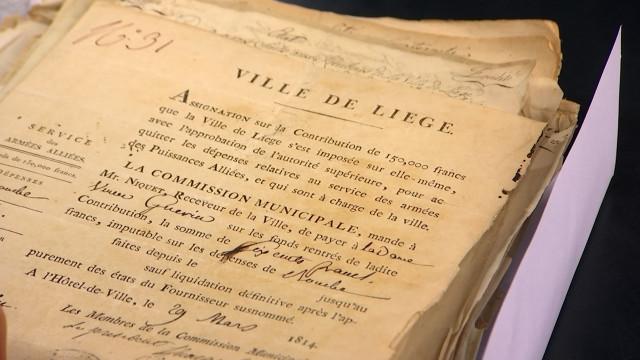 1631
VILLE DE LIEGE.
ASSIGNATION sur la Contribution de 150,000 francs
que la Ville de Liege s'est imposée sur elle-même,
avec l'approbation de l'autorité supérieure, pour ac-
quitter les dépenses relatives au service des armées
des Puissances Alliées, et qui sont à charge de la ville.
LA COMMISSION MUNICIPALE, mande à
Mr. NIQUET, Receveur de la Ville, de payer à La Dame
Veuve Guerin sur les fonds rentrés de ladite
Contribution, la somme de
francs, imputable sur les dépenses de Bouche
faites depuis le jusqu'au
sauf liquidation définitive après l'ap-
purement des états du Fournisseur susnommé.
A l'Hôtel-de-Ville, le 29 Mars 1814.
Les Membres de la Commission Munici
SERVICE
des
ARMÉES ALLIÉES.
de 150,000 francs.
DÉPENSES